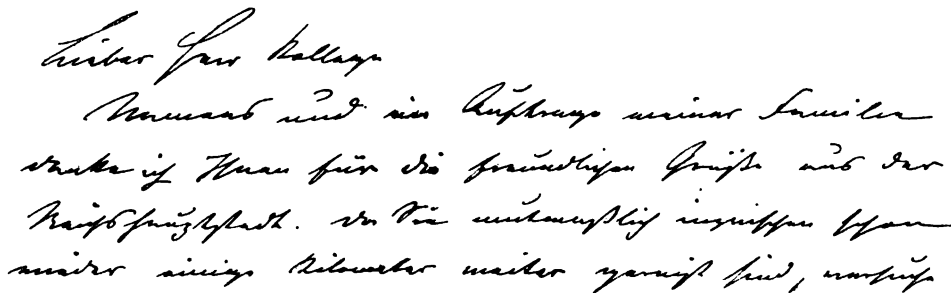 Lieber Herr Kollege
Namens und im Auftrage meiner Familie
danke ich Ihnen für die freundlichen Grüße aus der
Reichshauptstadt. Da Sie mutmaßlich inzwischen schon
wieder einige Kilometer weiter gereist sind, versuche